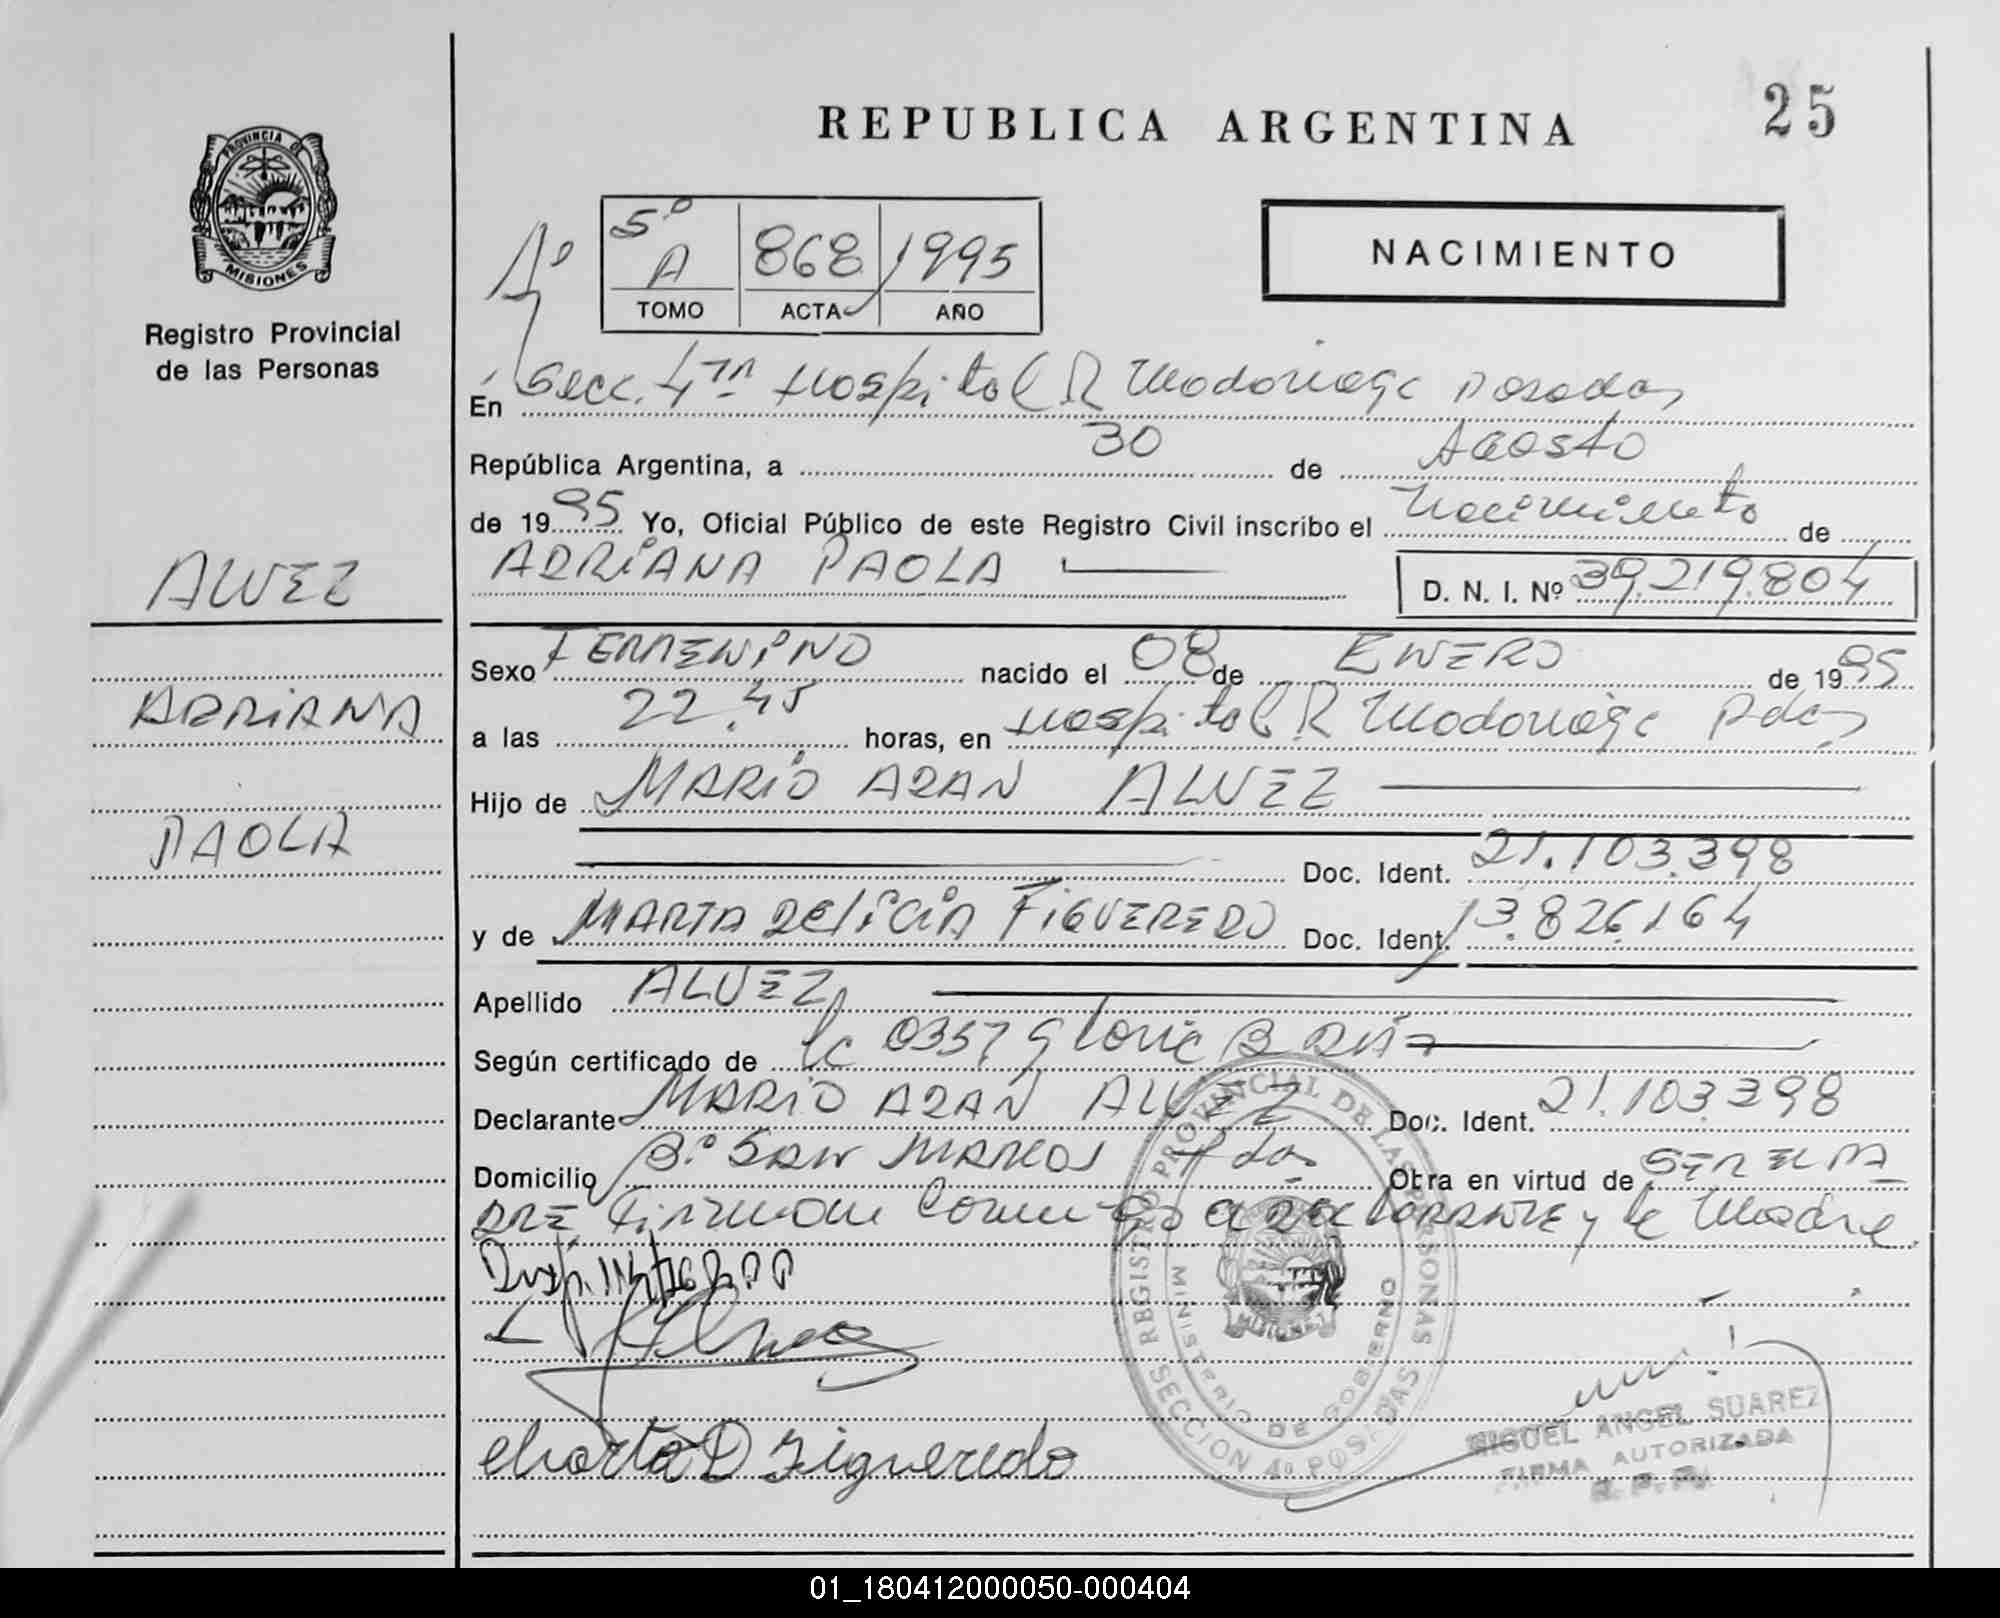 REPUBLICA ARGENTINA
25
PROVINCIA DE
MISIONES
Registro Provincial
de las Personas
1º
5º A 868 1995
TOMO ACTA AÑO
NACIMIENTO
En Secc. 4ta Hospital R Madariaga Posadas
República Argentina, a 30 de Agosto
de 1995 Yo, Oficial Público de este Registro Civil inscribo el Nacimiento de
ADRIANA PAOLA
D. N. I. Nº 39.219.804
ALVEZ
ADRIANA
PAOLA
Sexo FEMENINO nacido el 08 de ENERO de 1995
a las 22.45 horas, en Hospital R Madariaga Pdas
Hijo de MARIO ADAN ALVEZ
Doc. Ident. 21.103.398
y de MARTA DELICIA FIGUEREDO Doc. Ident. 13.826.164
Apellido ALVEZ
Según certificado de 0357 Gloria B
Declarante MARIO ADAN ALVEZ Doc. Ident. 21.103.398
Domicilio Bº SAN MARCOS Pdas Obra en virtud de SER EL PA
DRE Firman Conmigo el DECLARANTE y la Madre
Marta D Figueredo
REGISTRO PROVINCIAL DE LAS PERSONAS
MINISTERIO DE GOBIERNO
MISIONES
SECCION 4º POSADAS
MIGUEL ANGEL SUAREZ
FIRMA AUTORIZADA
R. P. P.
01_180412000050-000404